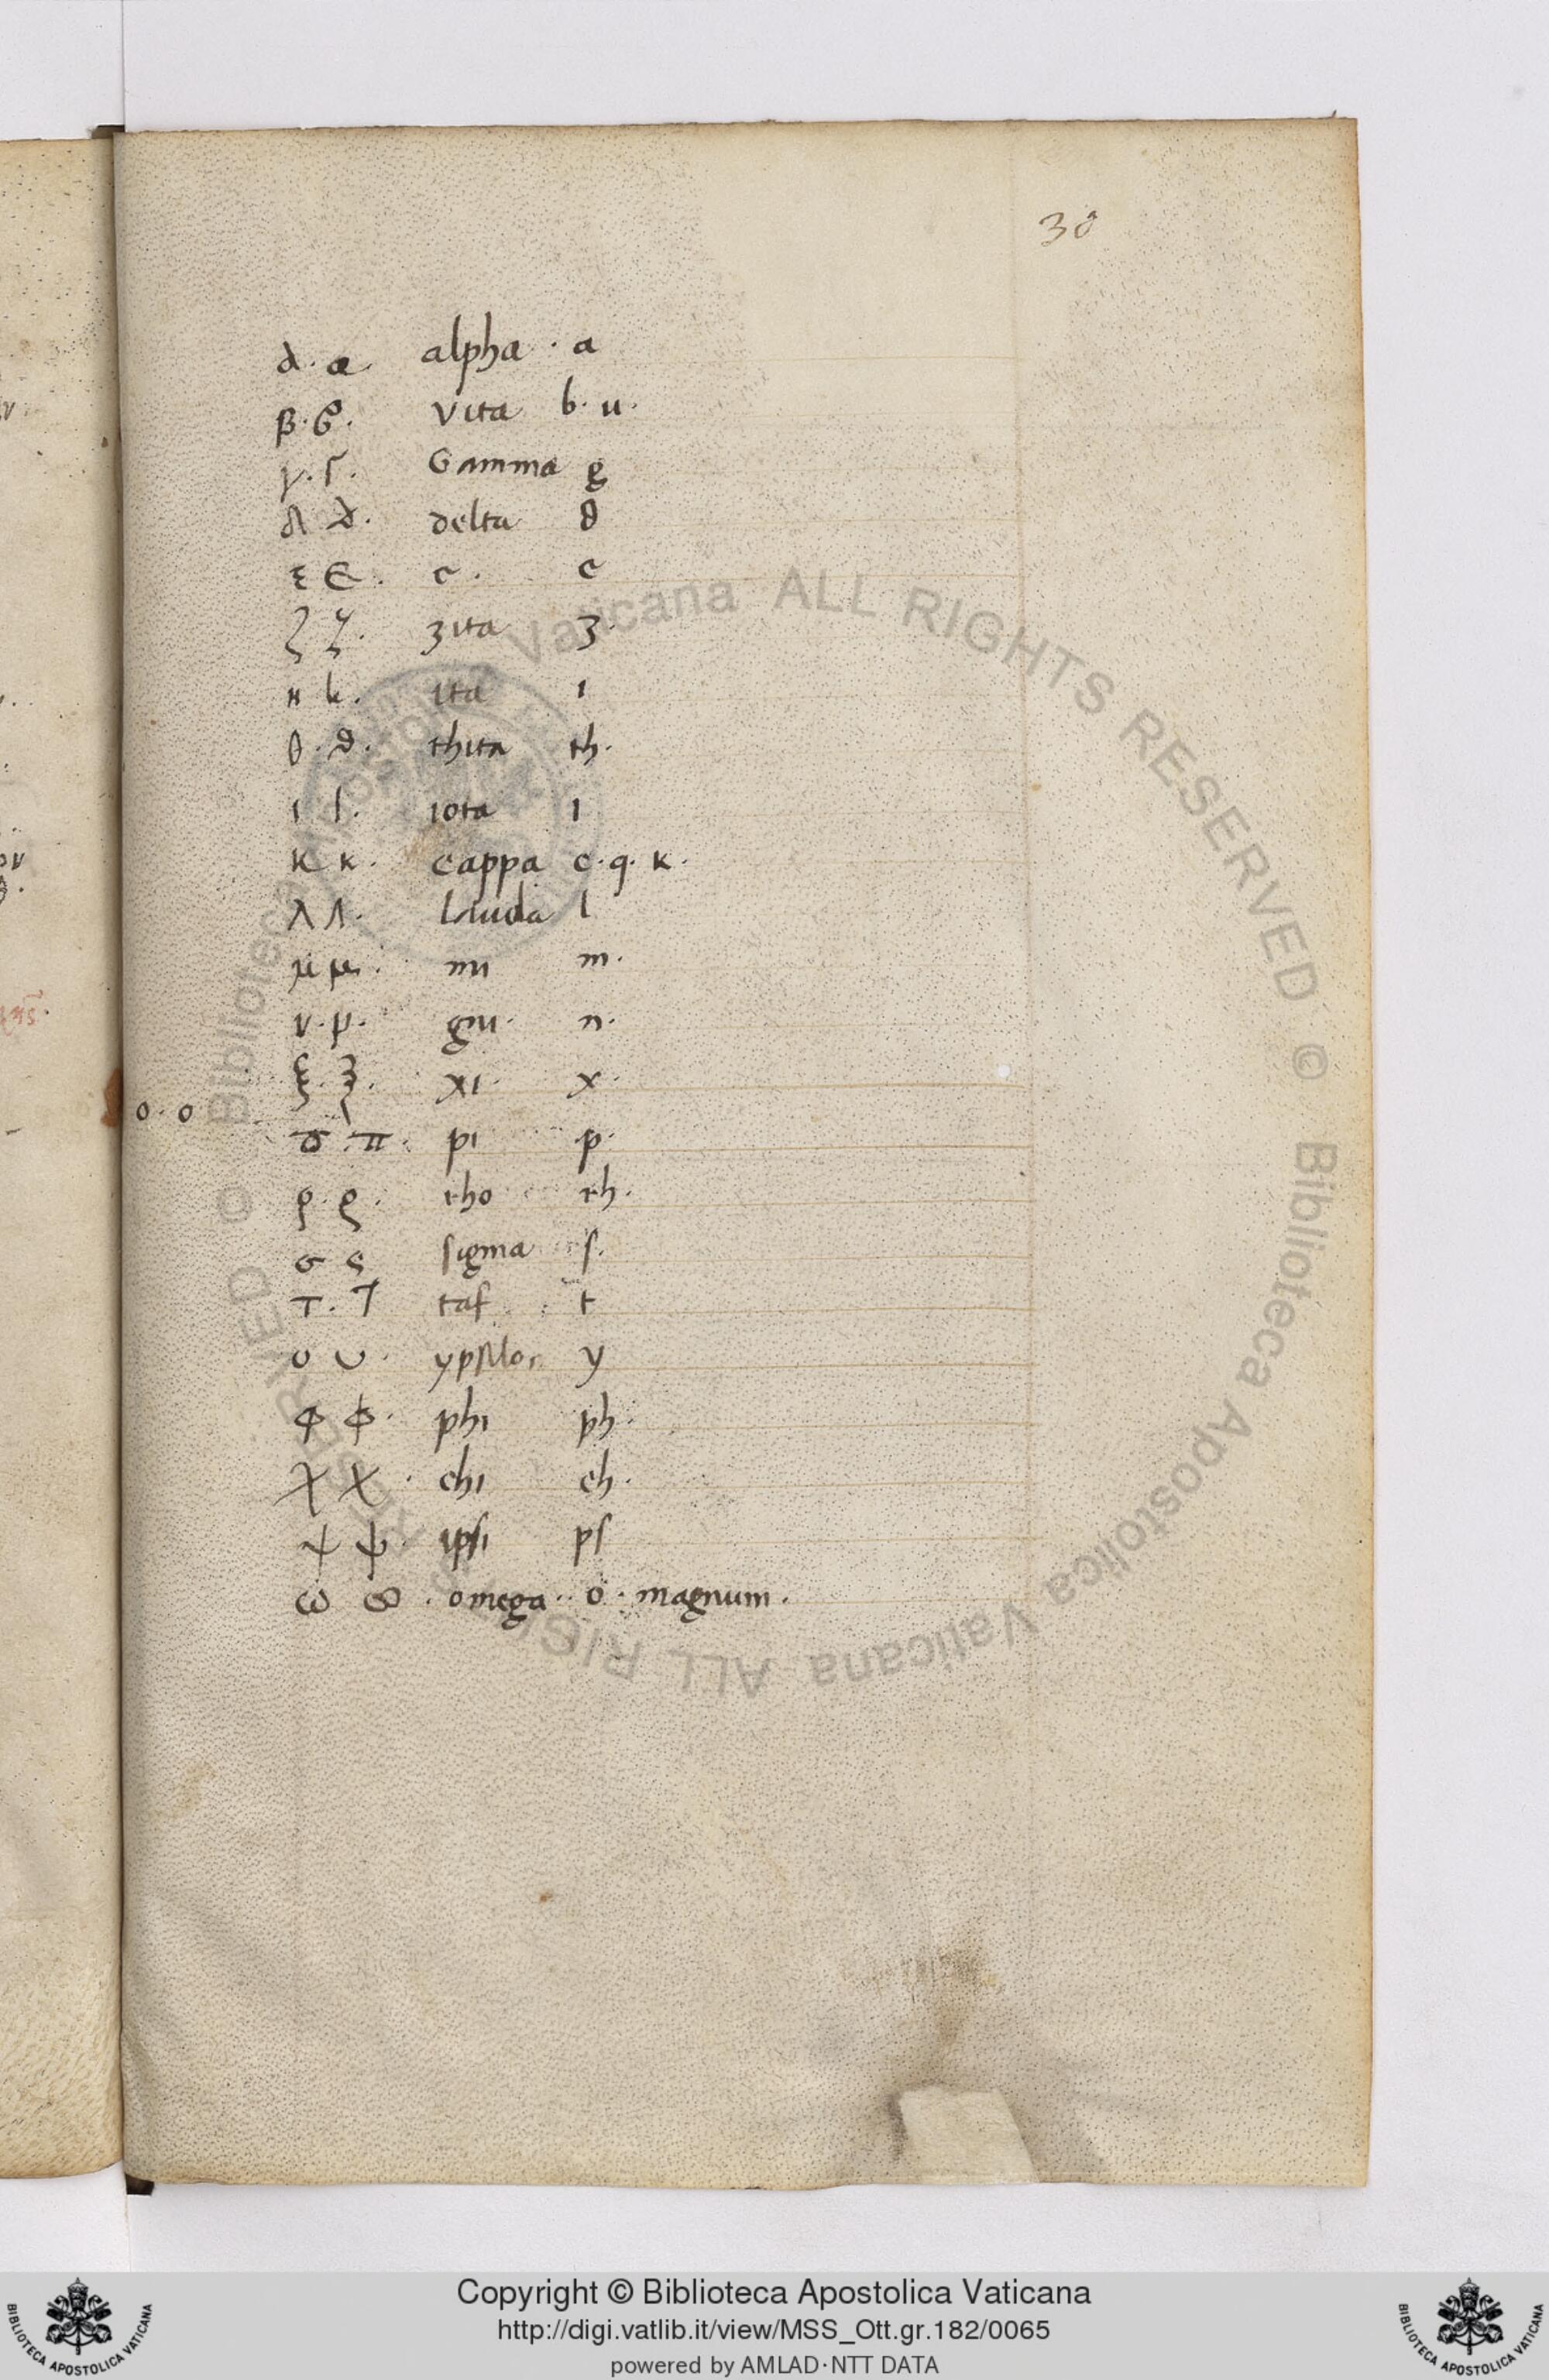 30
α · α alpha · a
β · ϐ · vita b · u ·
γ · Γ · Gamma g
δ δ · delta d
ε Є · e · e
ζ ζ · zita z ·
η h · ita i
θ · ϑ · thita th ·
ι ι · iota i
κ κ · cappa c · q · k ·
λ Λ · l
μ μ · mi m ·
ν · ν · gni · n ·
ξ · ξ · xi · x ·
ο · ο
π · π · pi p ·
ρ · ρ · rho rh ·
σ ς sigma s ·
τ · Τ taf t
υ υ · ypsilon y
φ φ · phi ph ·
χ χ · chi ch ·
ψ ψ · ipsi ps
ω ω · omega · o · magnum ·
Biblioteca Apostolica Vaticana ALL RIGHTS RESERVED © Biblioteca Apostolica Vaticana ALL RIGHTS RESERVED ©
Copyright © Biblioteca Apostolica Vaticana
http://digi.vatlib.it/view/MSS_Ott.gr.182/0065
powered by AMLAD·NTT DATA
BIBLIOTECA APOSTOLICA VATICANA
BIBLIOTECA APOSTOLICA VATICANA